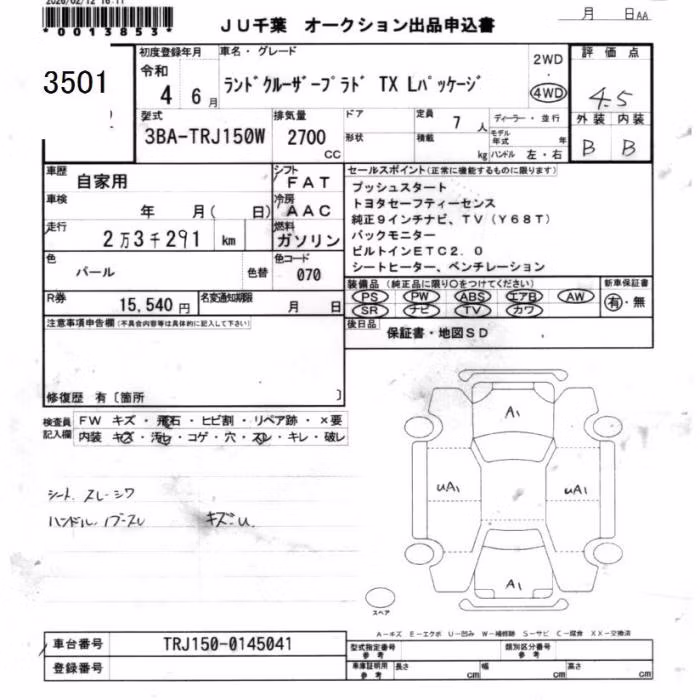 2026/02/12 16:11
*0013853*
JU千葉 オークション出品申込書
月 日AA
3501
初度登録年月
令和
4 6月
車名・グレード
ランドクルーザープラド TX Lパッケージ
2WD
4WD
評価点
4.5
外装 内装
B B
型式
3BA-TRJ150W
排気量
2700
CC
ドア
形状
定員
7 人
積載
kg
ディーラー・並行
モデル年式 年
ハンドル 左・右
車歴
自家用
シフト
FAT
車検
年 月( 日)
冷房
AAC
走行
2万3千291 km
燃料
ガソリン
色
パール
色替
色コード
070
R券
15,540円
名変通知期限
月 日
セールスポイント(正常に機能するものに限ります)
プッシュスタート
トヨタセーフティーセンス
純正9インチナビ、TV(Y68T)
バックモニター
ビルトインETC2.0
シートヒーター、ベンチレーション
装備品 (純正品に限り○をつけてください)
PS PW ABS エアB AW
SR ナビ TV カワ
新車保証書
有・無
後日品
保証書・地図SD
注意事項申告欄(不具合内容等は具体的に記入して下さい)
修復歴 有〔箇所 〕
検査員記入欄
FW キズ・飛石・ヒビ割・リペア跡・×要
内装 キズ・汚レ・コゲ・穴・スレ・キレ・破レ
シート スレ・シワ
キズ・U
A1
UA1
UA1
A1
スペア
A-キズ E-エクボ U-凹み W-補修跡 S-サビ C-腐食 XX-交換済
車台番号
TRJ150-0145041
登録番号
型式指定番号
参考
類別区分番号
参考
車庫証明用
参考
長さ cm
幅 cm
高さ cm